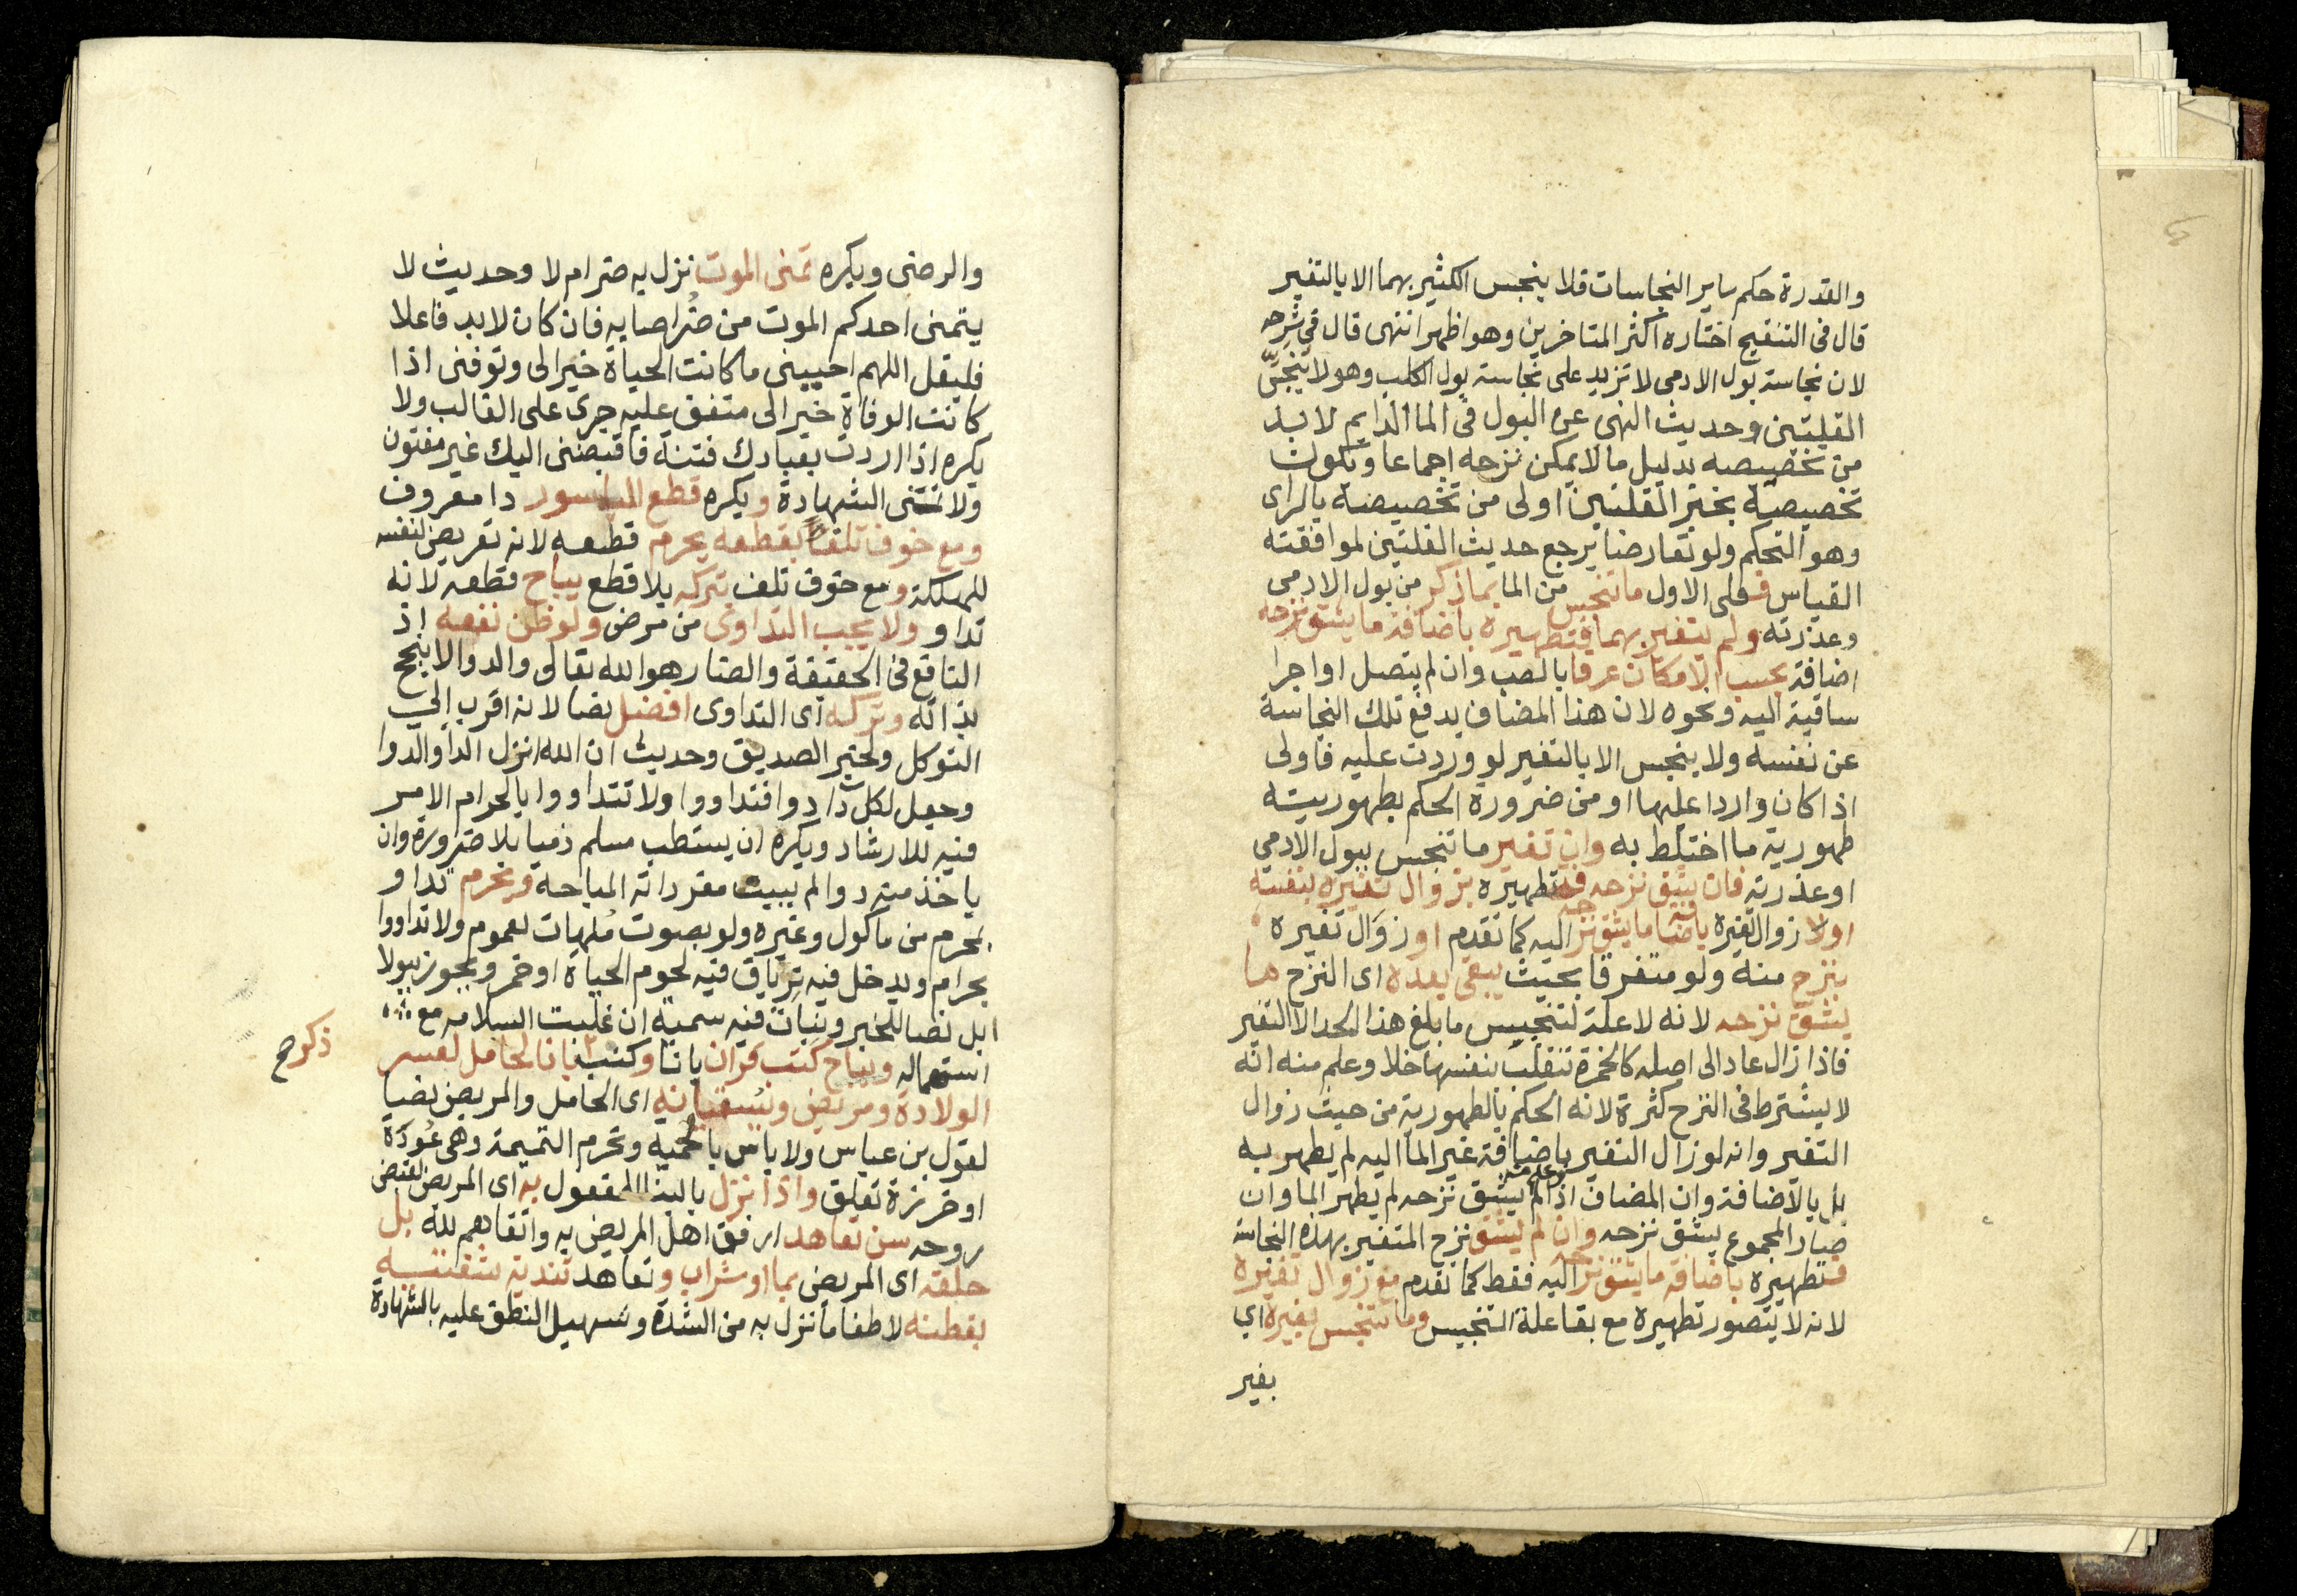 والقدرة حكم ساير النجاسات فلا ينجس الكثير بهما الا بالتغير
قال في التنقيح اختاره اكثر المتاخرين وهو اظهر انتهى قال في شرحه
لان نجاسة بول الادمى لا تزيد على نجاسة بول الكلب وهو لا ينجس
القلتين وحديث النهي عن البول في الما الدايم لا بد
من تخصيصه بدليل ما لا يمكن نزحه اجماعا ويكون
تخصيصه بخبر القلتين اولى من تخصيصه بالراى
وهو التحكم ولو تعارضا يرجع حديث القلتين لموافقته
القياس فعلى الاول ما تنجس من الما بما ذكر من بول الادمى
وعذرته ولم يتغير بهما فتطهيره باضافة ما يشق نزحه
اضافة بحسب الامكان عرفا بالصب وان لم يتصل او اجرا
ساقية اليه ونحوه لان هذا المضاف يدفع تلك النجاسة
عن نفسه ولا ينجس الا بالتغير لو وردت عليه فاولى
اذا كان واردا عليها او من ضرورة الحكم بطهوريته
طهورية ما اختلط به وان تغير ما تنجس ببول الادمي
او عذرته فان يشق نزحه فتطهيره بزوال تغيره بنفسه
اولا زوال تغيره باضافة ما يشق نزحه اليه كما تقدم او زوال تغيره
بنزح منه ولو متفرقا بحيث يبقى بعده اى النزح ما
يشق نزحه لانه لا علة لتنجيس ما بلغ هذا الحد الا التغير
فاذا زال عاد الى اصله كالخمرة تنقلب بنفسها خلا وعلم منه انه
لا يشترط في النزح كثرة لانه الحكم بالطهورية من حيث زوال
التغير وانه لو زال التغير باضافة غير الما اليه لم يطهر به
بل بالاضافة وان المضاف اذا لم يشق نزحه لم يطهر الما وان
صار المجموع يشق نزحه وان لم يشق نزح المتغير بهذه النجاسة
فتطهيره باضافة ما يشق نزحه اليه فقط كما تقدم مع زوال تغيره
لانه لا يتصور تطهيره مع بقا علة التنجيس وما تنجس بغيره اي
بغير
والرضى ويكره تمنى الموت نزل به ضر ام لا وحديث لا
يتمنى احدكم الموت من ضر اصابه فان كان لا بد فاعلا
فليقل اللهم احييني ما كانت الحياة خيرا لى وتوفنى اذا
كانت الوفاة خيرا لى متفق عليه جرى على الغالب ولا
يكره اذا اردت بعبادك فتنة فاقبضنى اليك غير مفتون
ولا تمنى الشهادة ويكره قطع الباسور دا معروف
ومع خوف تلف بقطعه يحرم قطعه لانه تعريض لنفسه
للهلكة ومع خوف تلف بتركه بلا قطع يباح قطعه لانه
تداو ولا يجب التداوى من مرض ولو ظن نفعه اذ
النافع في الحقيقة والضار هو الله تعالى والدوا لا ينجح
بذاته وتركه اى التداوى افضل نصا لانه اقرب الي
التوكل ولخبر الصديق وحديث ان الله انزل الدا والدوا
وجعل لكل دا دوا فتداووا ولا تتداووا بالحرام الامر
فيه للارشاد ويكره ان يستطب مسلم ذميا بلا ضرورة وان
ياخذ منه دوا لم يبين مفرداته المباحة ويحرم تداو
بمحرم من ماكول وغيره ولو بصوت ملهات لعموم ولا تداووا
بحرام ويدخل فيه ترياق فيه لحوم الحياة او خمر ويجوز ببول
ابل نصا للخبر ونبات فيه سمية ان غلبت السلامه مع
استعماله ويباح كتب قران بانا وكتب ذكر صح بانا لحامل لعسر
الولادة ومريض ويسقيانه اى الحامل والمريض نصا
لقول بن عباس ولا باس بالحمية وتحرم التميمة وهى عوذة
او خرزة تعلق واذا نزل بالبنا للمفعول به اى المريض لقبض
روحه سن تعاهد ارفق اهل المريض به واتقاهم لله بل
حلقه اى المريض بما او شراب وتعاهد تندية شفتيه
بقطنه لاطفا ما نزل به من الشدة وتسهيل النطق عليه بالشهادة